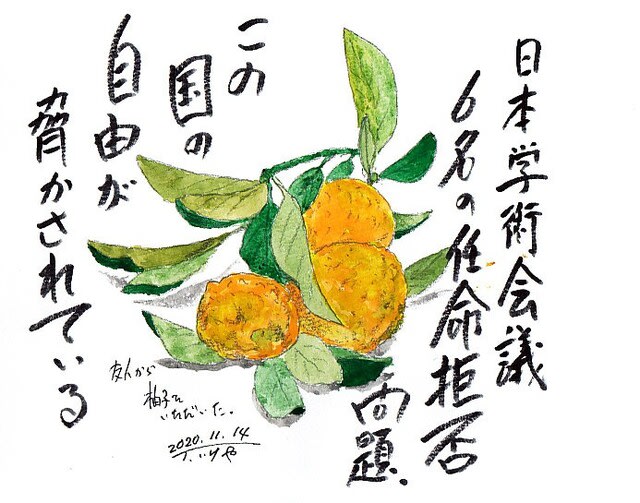 日本学術会議
6名の任命拒否
問題.
この
国の
自由が
脅かされている
友人から
柚子を
いただいた。
2020.11.14